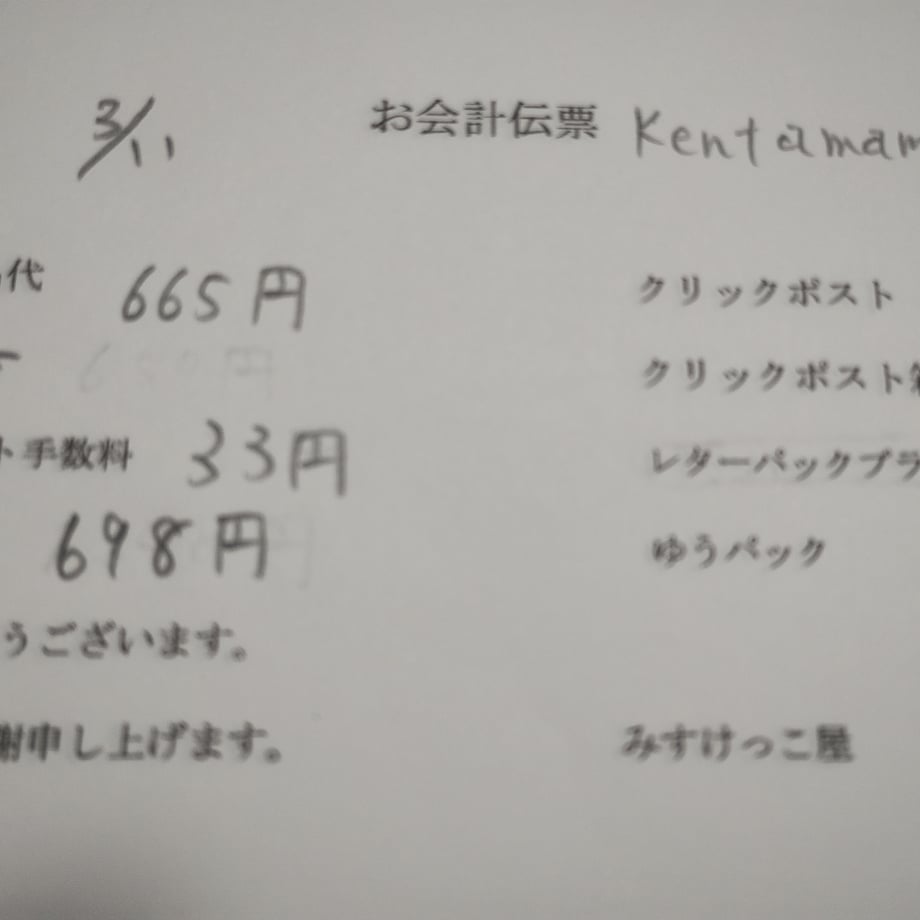 3/11 お会計伝票 Kentamam
代 665円 クリックポスト
クリックポスト
ト手数料 33円 レターパックプラ
698円 ゆうパック
うございます。
謝申し上げます。 みすけっこ屋